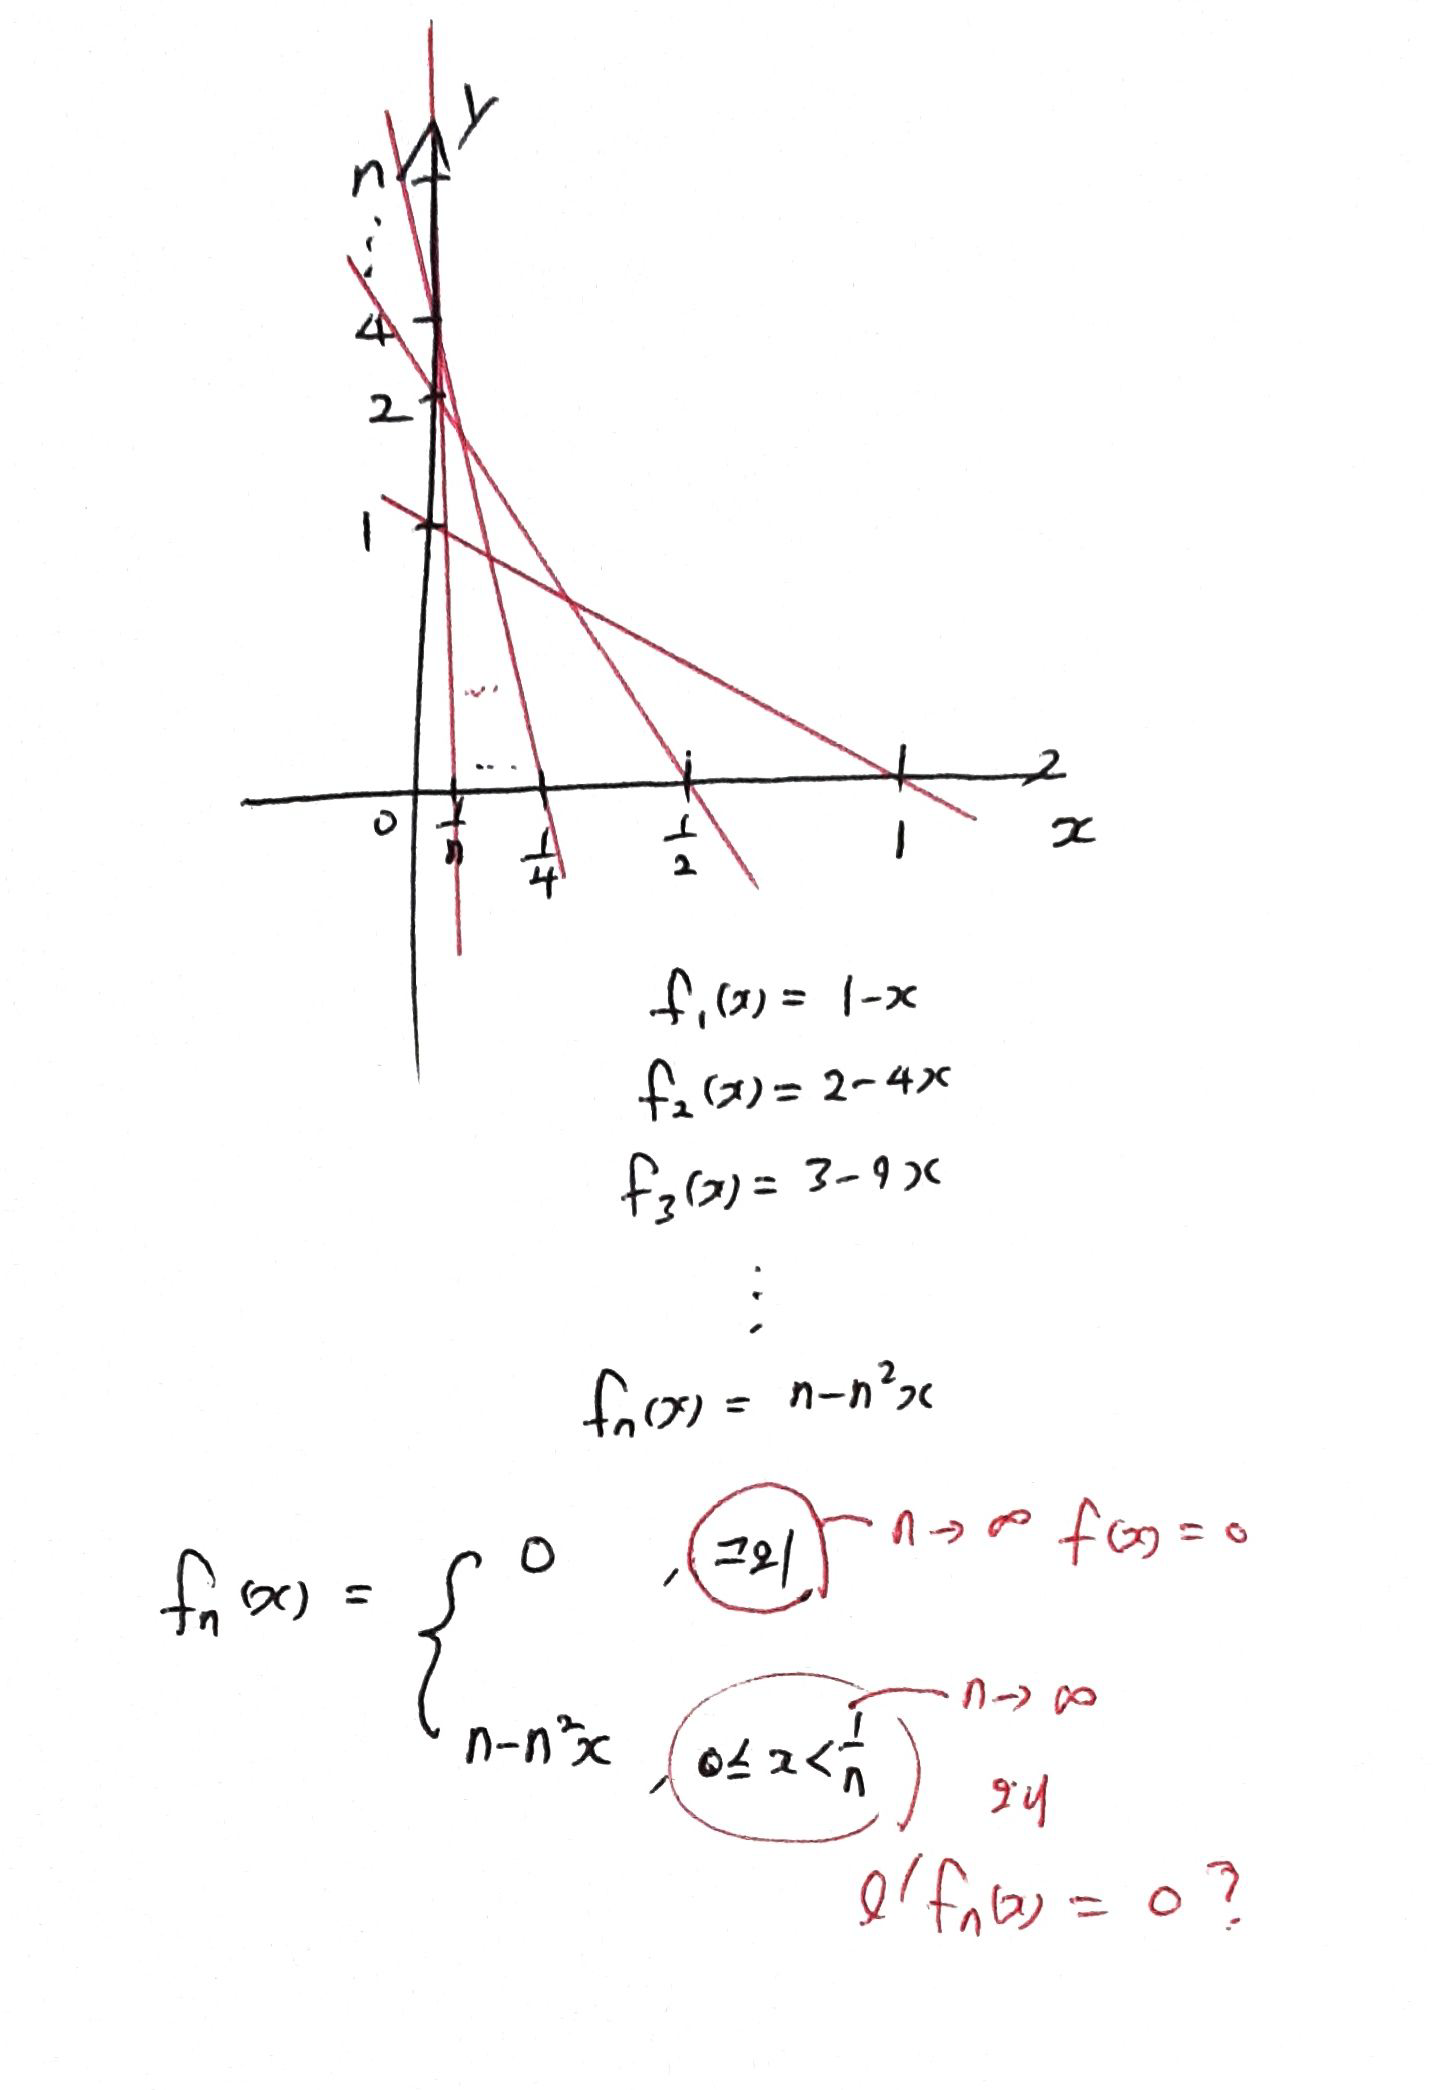 y
n
⋮
4
2
1
0 1/n 1/4 1/2 1 x
f₁(x) = 1-x
f₂(x) = 2-4x
f₃(x) = 3-9x
⋮
fₙ(x) = n-n²x
fₙ(x) = { 0 , 그외 n→∞ f(x) = 0
n-n²x , 0≤x<1/n n→∞
fₙ(x) = 0 ?